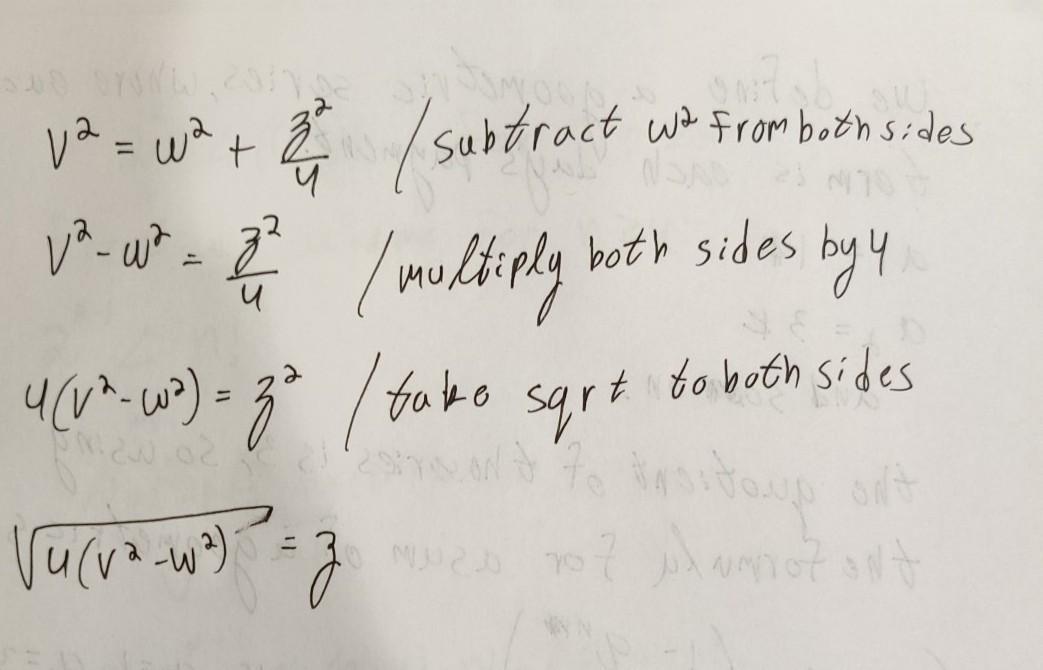 v² = w² + z²/4 / subtract w² from both sides
v² - w² = z²/4 / multiply both sides by 4
4(v² - w²) = z² / take sqrt to both sides
√4(v² - w²) = z